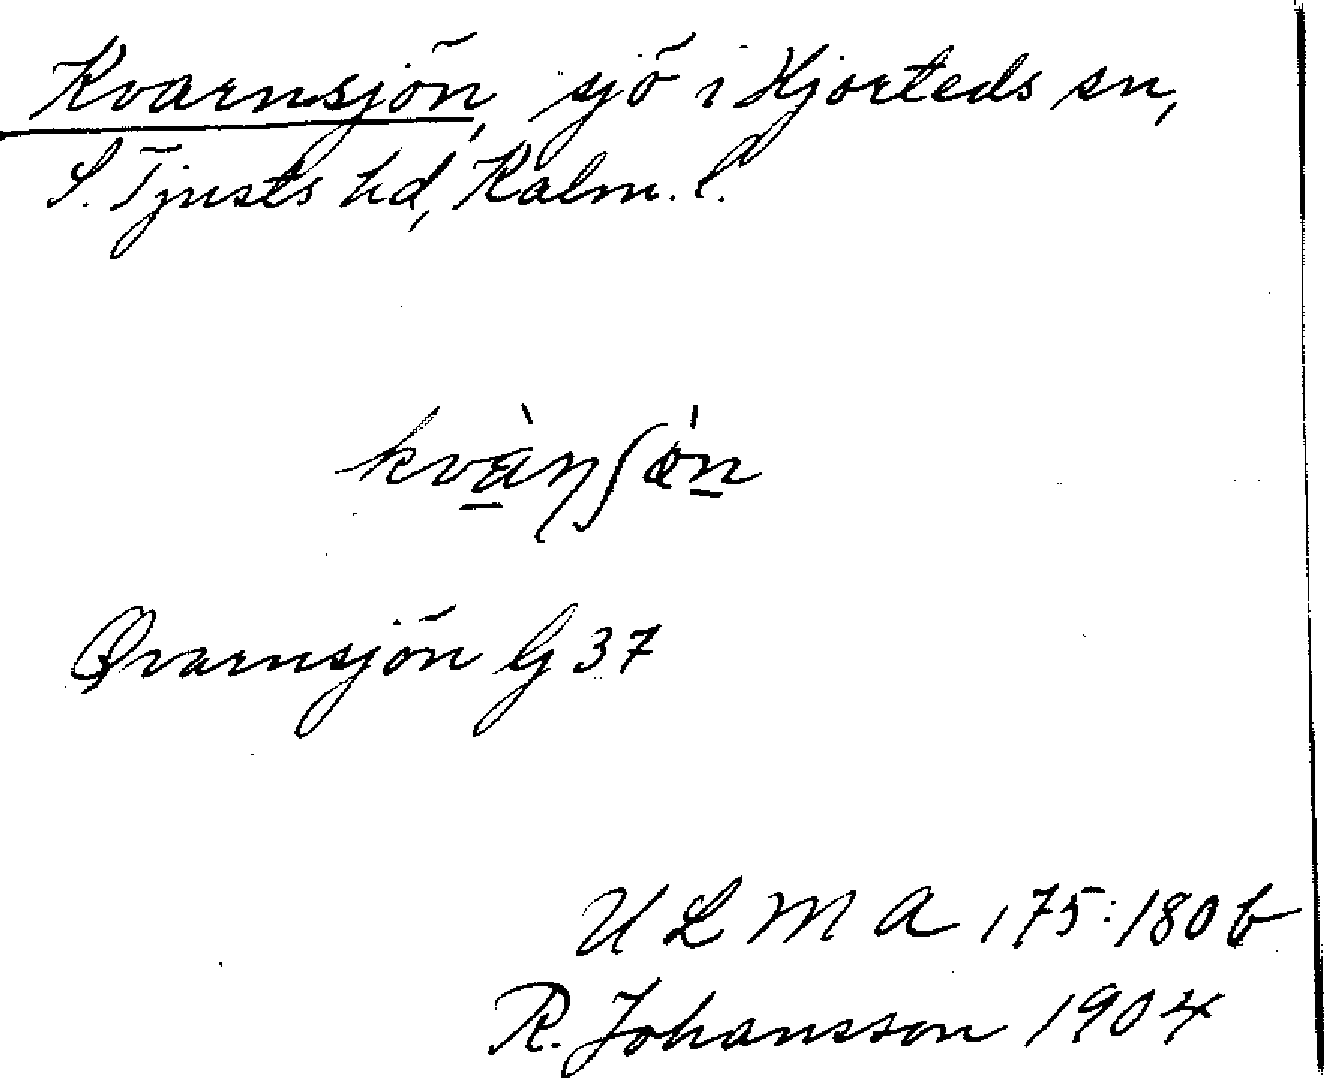 Kvarnsjön, sjö i Hjorteds sn,
S. Tjusts hd, Kalm. l.
kvàŋʃö̀n
Qvarnsjön G 37
U L M A 175:180 b
R. Johansson 1904